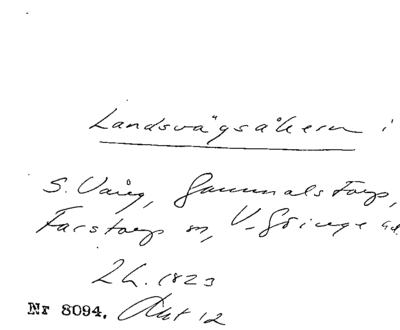 Landsvägsåkern i
S. Vång, Gammalstorp,
Farstorp sn, V. Göinge hd.
Lh. 1823
Nr 8094. Akt 12